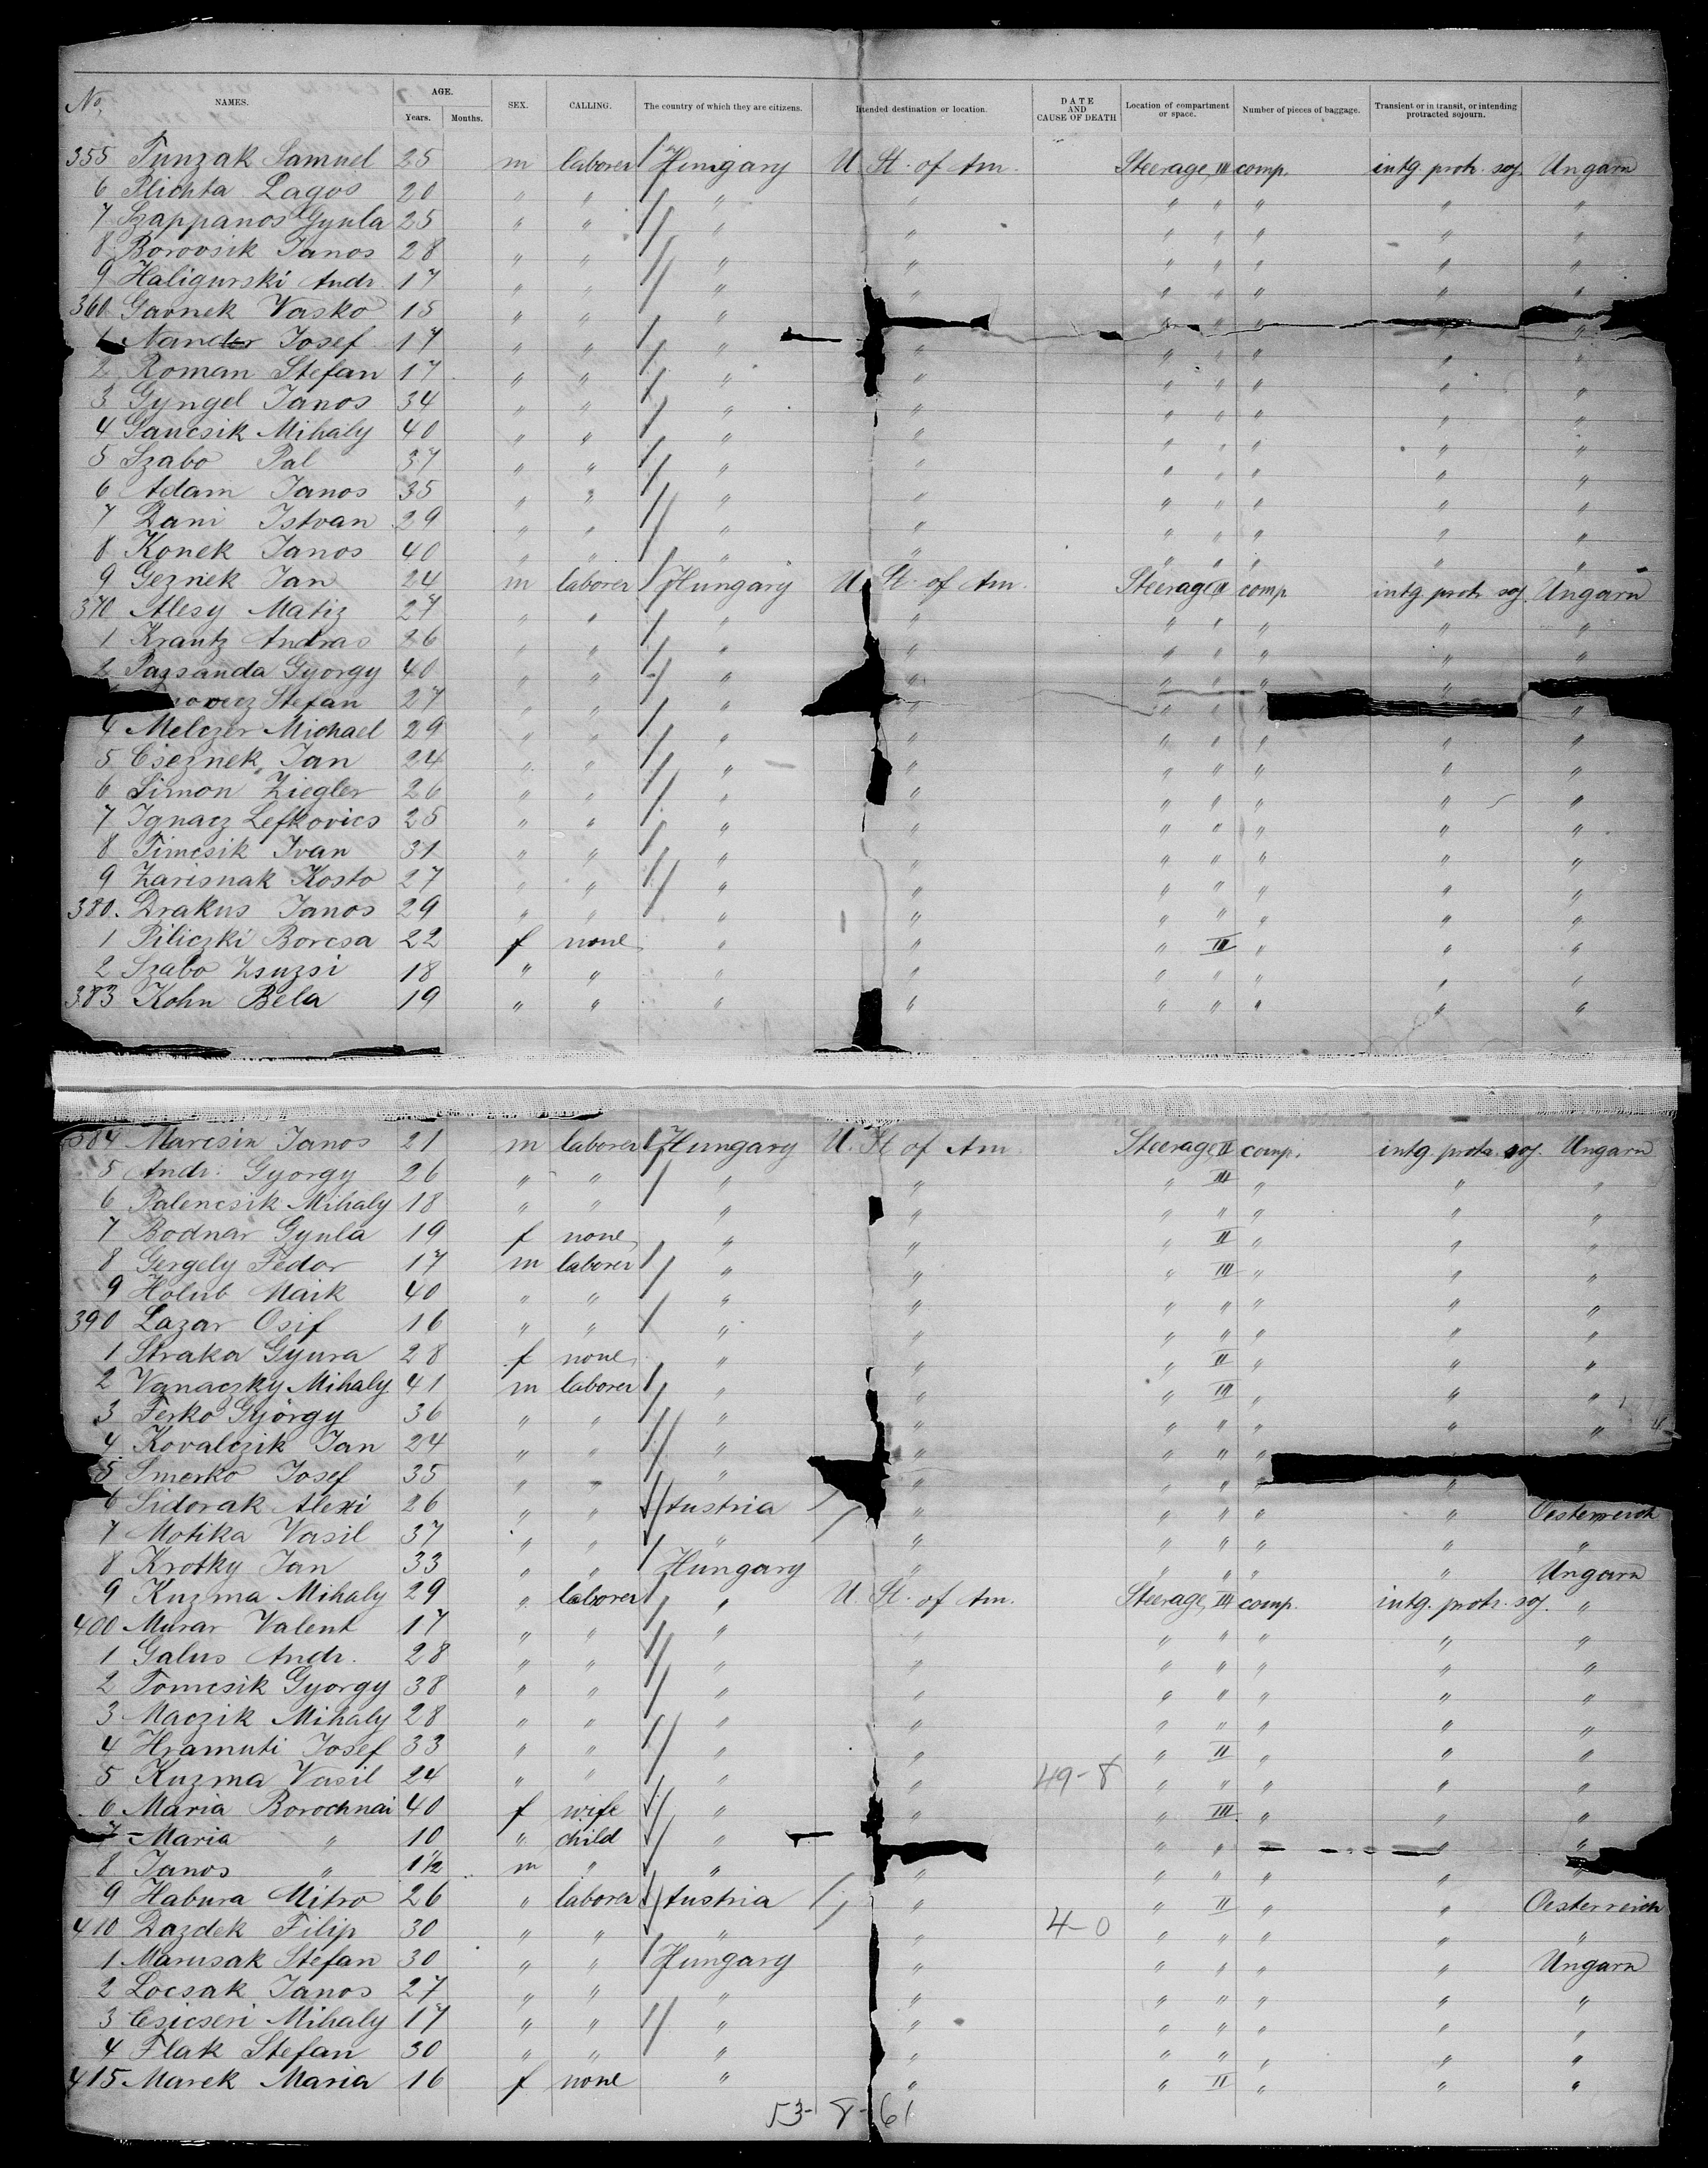 No. NAMES. AGE. Years. Months. SEX. CALLING. The country of which they are citizens. Intended destination or location. DATE AND CAUSE OF DEATH Location of compartment or space. Number of pieces of baggage. Transient or in transit, or intending protracted sojourn.
355 Tunzak Samuel 25 m laborer Hungary U. St. of Am. Steerage, III comp. intg. protr. soj. Ungarn
6 Plichta Lagos 20 " " " " " " " " "
7 Szappanos Gyula 25 " " " " " " " " "
8 Borovsik Janos 28 " " " " " " " " "
9 Haligurski Andr. 17 " " " " " " " " "
360 Gavnek Vasko 15 " " " " " " " "
1 Nander Josef 17 " " " " " " " "
2 Roman Stefan 17 " " " " " " " " "
3 Gyngel Janos 34 " " " " " " " " "
4 Gancsik Mihaly 40 " " " " " " " " "
5 Szabo Pal 37 " " " " " " " " "
6 Adam Janos 35 " " " " " " " " "
7 Dani Istvan 29 " " " " " " " " "
8 Konek Janos 40 " " " " " " " " "
9 Geznek Jan 24 m laborer Hungary U. St. of Am. Steerage II comp intg. protr. soj. Ungarn
370 Alesy Matiz 27 " " " " " " " " "
1 Krantz Andras 26 " " " " " " " " "
2 Pazsanda Gyorgy 40 " " " " " " " "
Stefan 27 " " " " " " " "
4 Melczer Michael 29 " " " " " " " " "
5 Cseznek Jan 24 " " " " " " " " "
6 Simon Ziegler 26 " " " " " " " " "
7 Ignacz Lefkovics 25 " " " " " " " " "
8 Timcsik Ivan 31 " " " " " " " " "
9 Zarisnak Kosto 27 " " " " " " " " "
380. Drakus Janos 29 " " " " " " " " "
1 Piliczki Borcsa 22 f none " " " III " " "
2 Szabo Zsuzsi 18 " " " " " " " " "
383 Kohn Bela 19 " " " " " " " " "
384 Marcsin Janos 21 m laborer Hungary U. St. of Am. Steerage, II comp. intg. protr. soj. Ungarn
5 Andr. Gyorgy 26 " " " " " III " " "
6 Palencsik Mihaly 18 " " " " " " " " "
7 Bodnar Gyula 19 f none " " " II " " "
8 Gergely Fedor 17 m laborer " " " III " " "
9 Holub Maik 40 " " " " " " " " "
390 Lazar Osif 16 " " " " " " " " "
1 Straka Gyura 28 f none " " " II " " "
2 Vanaczky Mihaly 41 m laborer " " " III " " "
3 Ferko György 36 " " " " " " " " "
4 Kovalczik Jan 24 " " " " " " "
5 Smerko Josef 35 " " " " " " " "
6 Sidorak Alexi 26 " " Austria " " " " " Oesterreich
7 Motika Vasil 37 " " " " " " " " "
8 Krotky Jan 33 " " Hungary " " " " Ungarn
9 Kuzma Mihaly 29 " laborer " U. St. of Am. Steerage, III comp. intg. protr. soj. "
400 Murar Valent 17 " " " " " " " " "
1 Galus Andr. 28 " " " " " " " " "
2 Tomcsik Gyorgy 38 " " " " " " " " "
3 Maczik Mihaly 28 " " " " " " " " "
4 Hramuti Josef 33 " " " " " II " " "
5 Kuzma Vasil 24 " " " " 49-8 " " " " "
6 Maria Borochnai 40 f wife " " " III " " "
7 Maria " 10 " child " " " " "
8 Janos " 1½ m " " " " " " " "
9 Habura Mitro 26 " laborer Austria " " II " " Oesterreich
410 Dazdek Filip 30 " " " " 4-0 " " " " "
1 Marusak Stefan 30 " " Hungary " " " " " Ungarn
2 Locsak Janos 27 " " " " " " " " "
3 Csicseri Mihaly 17 " " " " " " " " "
4 Flak Stefan 30 " " " " " " " " "
415 Marek Maria 16 f none " " " II " " "
53-8-61